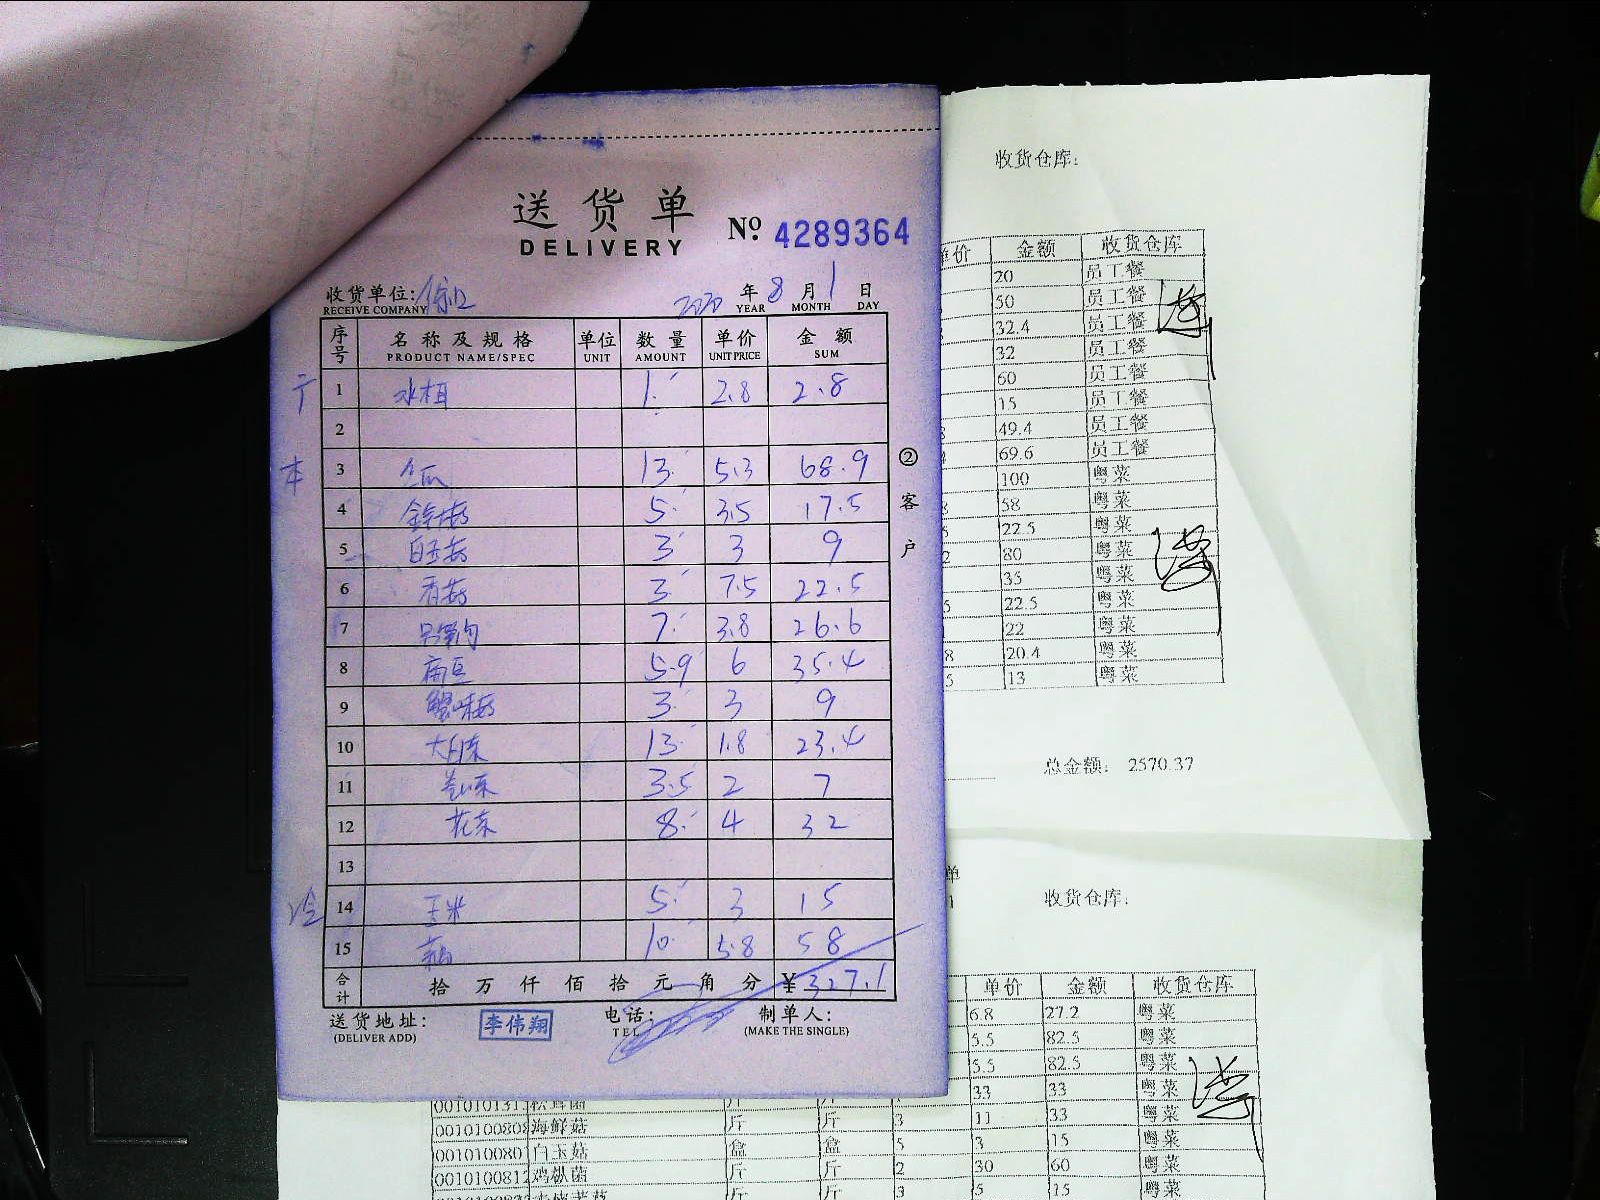 送货单
DELIVERY
No. 4289364
收货单位:
RECEIVE COMPANY
2020 年 8 月 1 日
YEAR MONTH DAY
序号 名称及规格 单位 数量 单价 金额
PRODUCT NAME/SPEC UNIT AMOUNT UNIT PRICE SUM
1 1 2.8 2.8
2
本 3 13 5.3 68.9
4 金针菇 5 3.5 17.5
5 白玉菇 3 3 9
6 香菇 3 7.5 22.5
7 7 3.8 26.6
8 扁豆 5.9 6 35.4
9 蟹味菇 3 3 9
10 13 1.8 23.4
11 3.5 2 7
12 花菜 8 4 32
13
冷 14 玉米 5 3 15
15 10 5.8 58
合计 拾 万 仟 佰 拾 元 角 分 ¥ 327.1
送货地址:
(DELIVER ADD)
李伟翔
电话:
TEL
制单人:
(MAKE THE SINGLE)
② 客户
收货仓库:
单价 金额 收货仓库
20 员工餐
50 员工餐
32.4 员工餐
32 员工餐
60 员工餐
15 员工餐
49.4 员工餐
69.6 员工餐
100 粤菜
58 粤菜
22.5 粤菜
80 粤菜
35 粤菜
22.5 粤菜
22 粤菜
20.4 粤菜
13 粤菜
总金额: 2570.37
单
收货仓库:
单价 金额 收货仓库
6.8 27.2 粤菜
5.5 82.5 粤菜
5.5 82.5 粤菜
33 33 粤菜
斤 斤 3 11 33 粤菜
白玉菇 盒 盒 5 3 15 粤菜
鸡枞菌 斤 斤 2 30 60 粤菜
斤 斤 3 5 15 粤菜